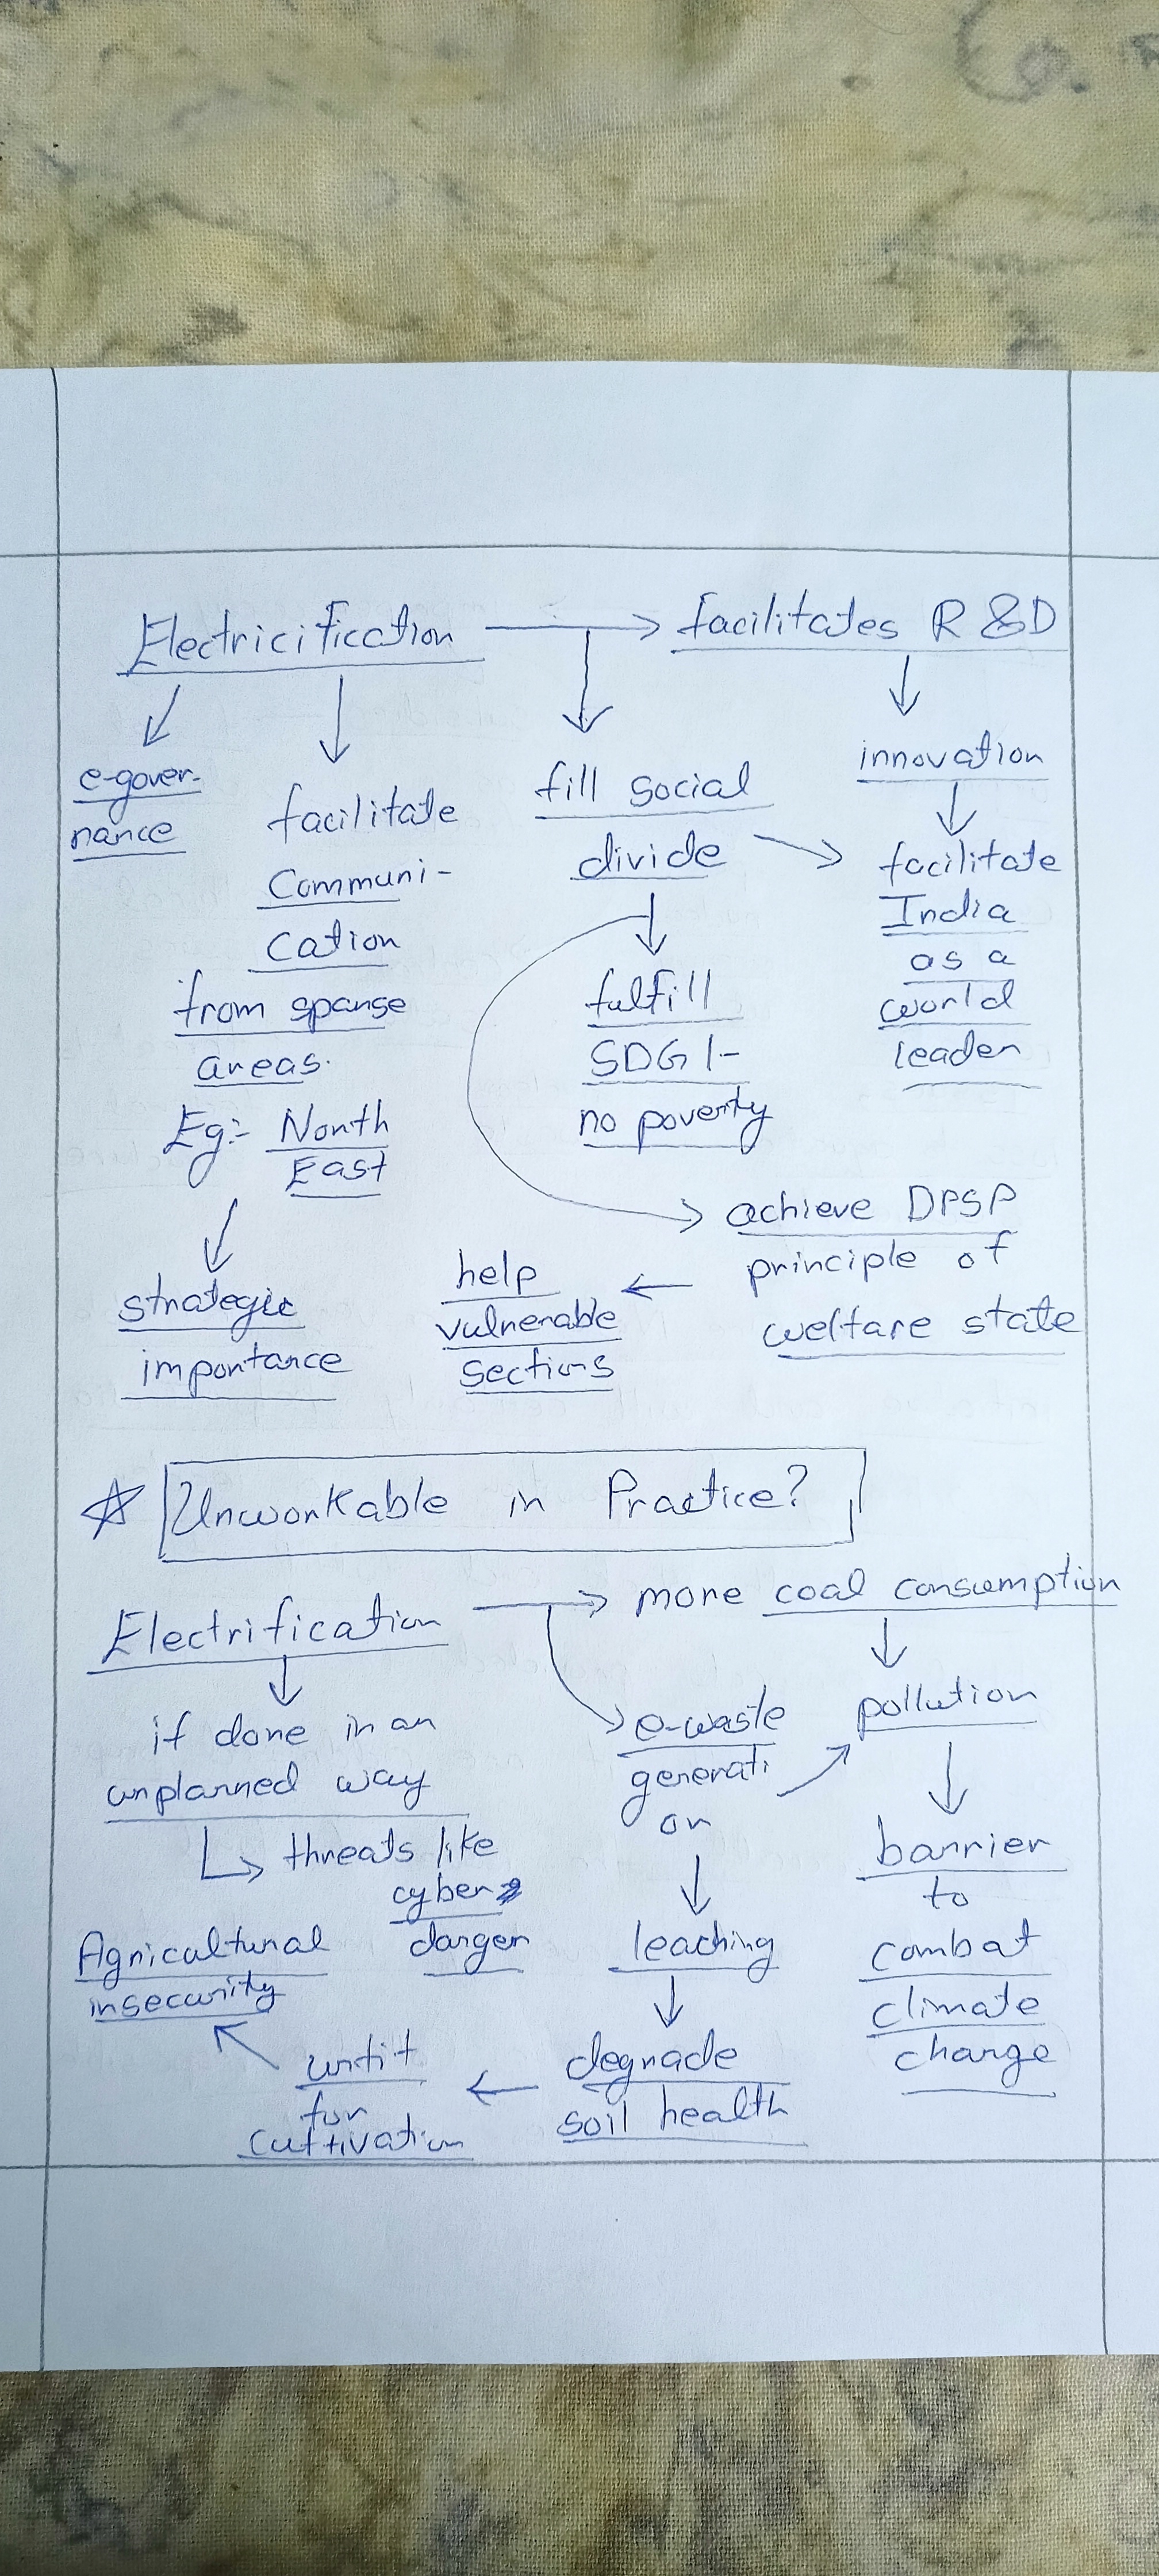 Electricification → facilitates R &D
e-gover-
nance
facilitate
Communi-
cation
from sparse
areas.
Eg:- North
East
strategic
importance
fill social
divide
fulfill
SDG 1-
no poverty
innovation
facilitate
India
as a
world
leader
achieve DPSP
principle of
welfare state
help
vulnerable
sections
☆ Unworkable in Practice?
Electrification → more coal consumption
if done in an
unplanned way
threats like
cyber
danger
e-waste
generati
on
pollution
barrier
to
combat
climate
change
leaching
degrade
soil health
unfit
for
cultivation
Agricultural
insecurity